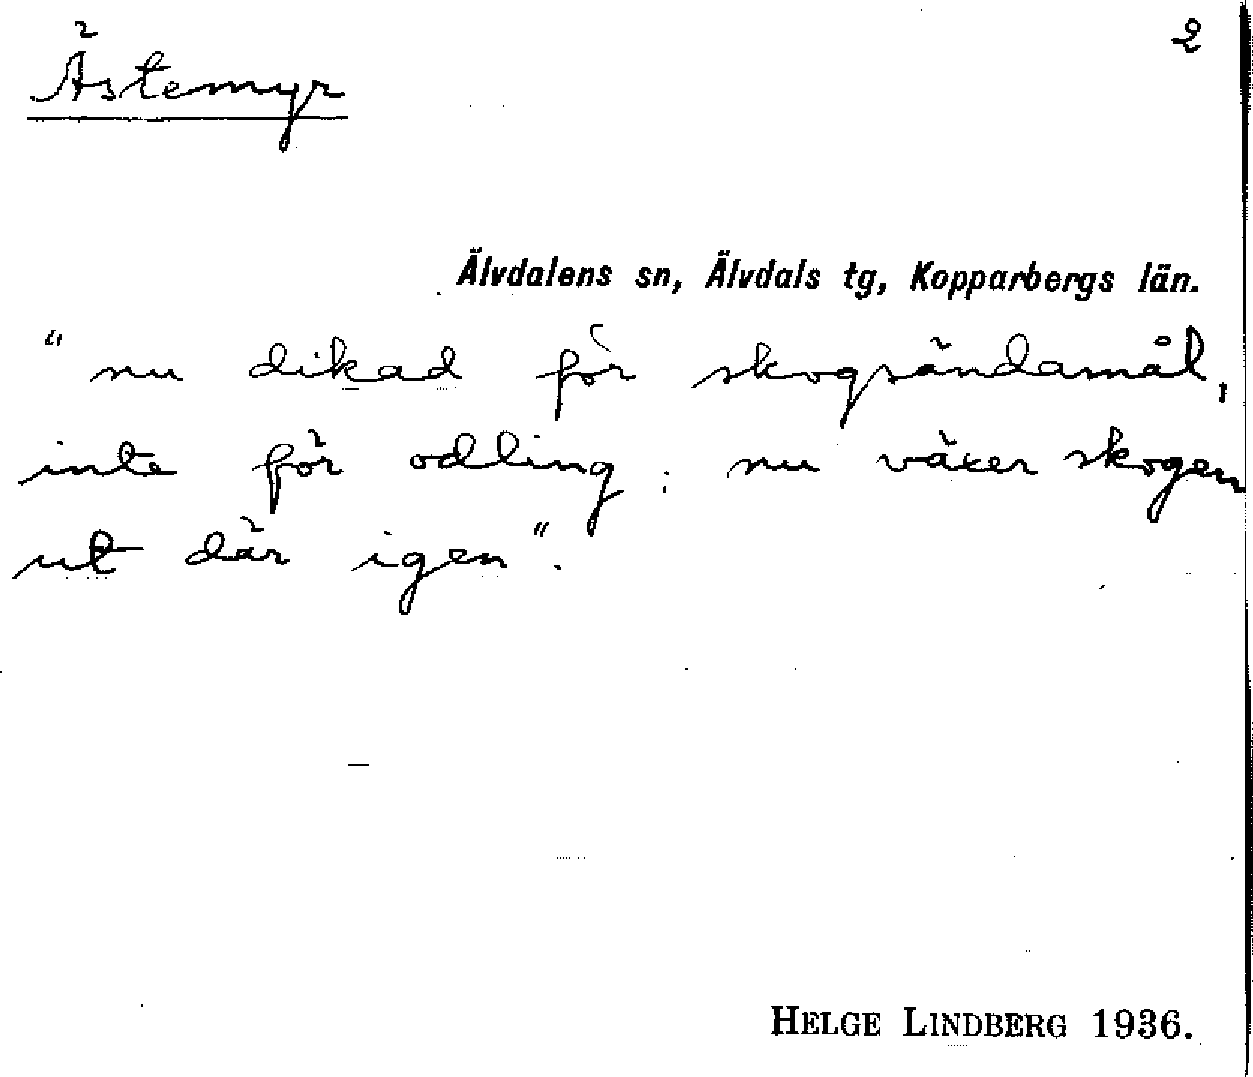 Ästemyr 2
Älvdalens sn, Älvdals tg, Kopparbergs län.
"nu dikad för skogsändamål,
inte för odling; nu växer skogen
ut där igen".
HELGE LINDBERG 1936.